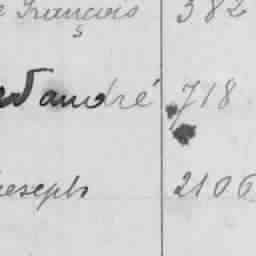 François 382
André 718
Joseph 2106